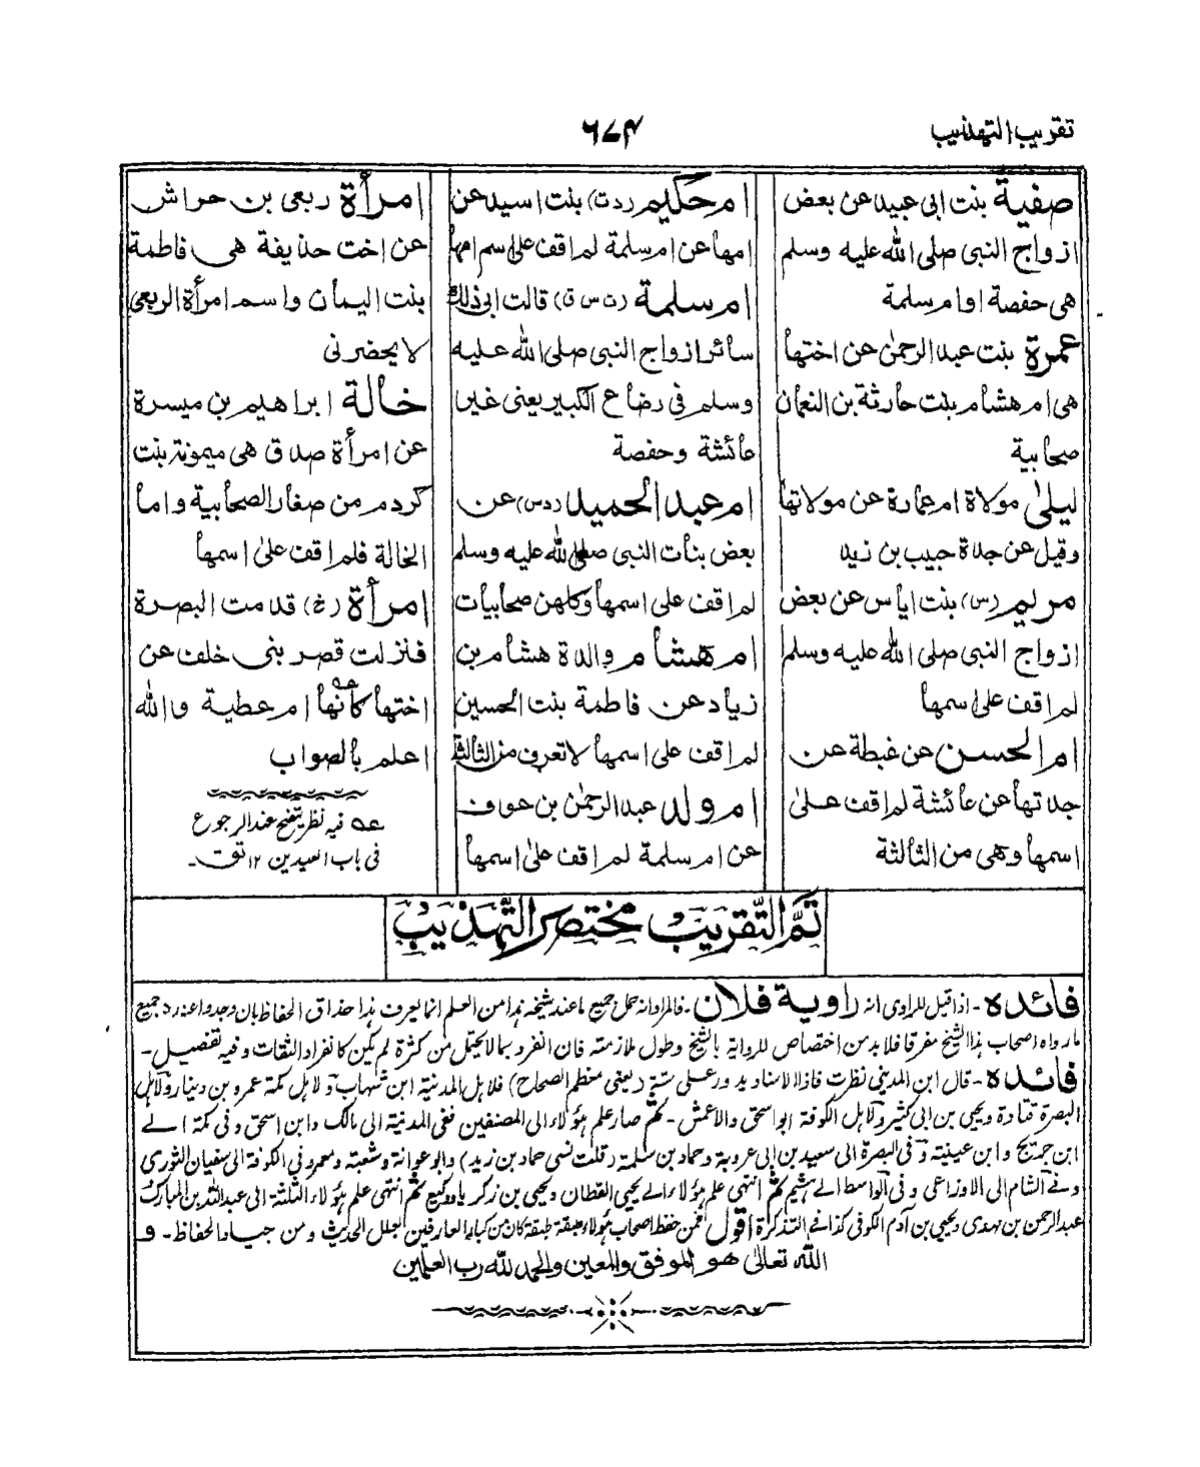 تقريب التهذيب
٦٧٤
صفية بنت ابى عبيد عن بعض
ازواج النبى صلى الله عليه وسلم
هى حفصة او ام سلمة
عمرة بنت عبد الرحمٰن عن اختها
هى ام هشام بنت حارثة بن النعمان
صحابية
ليلىٰ مولاة ام عمارة عن مولاتها
وقيل عن جدة حبيب بن زيد
مريم (س) بنت اياس عن بعض
ازواج النبى صلى الله عليه وسلم
لم اقف على اسمها
ام الحسن عن غبطة عن
جدتها عن عائشة لم اقف علىٰ
اسمها وهى من الثالثة
ام حكيم (د ت) بنت اسيد عن
امها عن ام سلمة لم اقف على اسم امها
ام سلمة (ت س ق) قالت ابى ذلك
سائر ازواج النبى صلى الله عليه
وسلم فى رضاع الكبير يعنى غير
عائشة وحفصة
ام عبد الحميد (د س) عن
بعض بنات النبى صلى الله عليه وسلم
لم اقف على اسمها وكلهن صحابيات
ام هشام والدة هشام بن
زياد عن فاطمة بنت الحسين
لم اقف على اسمها لا تعرف من الثالثة
ام ولد عبد الرحمٰن بن عوف
عن ام سلمة لم اقف علىٰ اسمها
امرأة ربعى بن حراش
عن اخت حذيفة هى فاطمة
بنت اليمان واسم امرأة الربعى
لا يحضرنى
خالة ابراهيم بن ميسرة
عن امرأة صدق هى ميمونة بنت
كردم من صغار الصحابية واما
الخالة فلم اقف علىٰ اسمها
امرأة (خ) قدمت البصرة
فنزلت قصر بنى خلف عن
اختها كأنها ام عطية والله
اعلم بالصواب
عه فيه نظر يتضح عند الرجوع
فى باب العيدين ١٢
تَمَّ التَّقريبُ مختصر التَّهذيب
فائده - اذا قيل للراوى انه راوية فلان - فالمراد انه حمل جميع ما عند شيخه هذا من العلم انما يعرف هذا حذاق الحفاظ بان وجدوا عنده جميع
ما رواه اصحاب هذا الشيخ مفرقا فلا بد من اختصاص للرواية بالشيخ وطول ملازمته فان انفرد بما لا يحتمل من كثرة لم يكن كانفراد الثقات وفيه تفصيل -
فائده - قال ابن المدينى نظرت فاذا الاسناد يدور على ستة (يعنى معظم الصحاح) فلاهل المدينة ابن شهاب ولاهل مكة عمرو بن دينار ولاهل
البصرة قتادة ويحيى بن ابى كثير ولاهل الكوفة ابو اسحق والاعمش - ثم صار علم هؤلاء الى المصنفين ففى المدينة الى مالك وابن اسحق وفى مكة الے
ابن جريج وابن عيينة وفى البصرة الى سعيد بن ابى عروبة وحماد بن سلمة (قلت نسى حماد بن زيد) وابو عوانة وشعبة ومعمر وفى الكوفة الى سفيان الثورى
وفے الشام الى الاوزاعى وفى الواسط الے هشيم ثم انتهى علم هؤلاء الے يحيى القطان ويحيى بن زكريا ووكيع ثم انتهى علم هؤلاء الثلثة الى عبد الله بن المبارك
عبد الرحمن بن مهدى ويحيى بن آدم الكوفى كذا فے التذكرة اقول فمن حفظ اصحاب هؤلاء طبقة طبقة كان من كبار العارفين بعلل الحديث ومن جياد الحفاظ - و
الله تعالىٰ هو الموفق والمعين والحمد لله رب العلمين